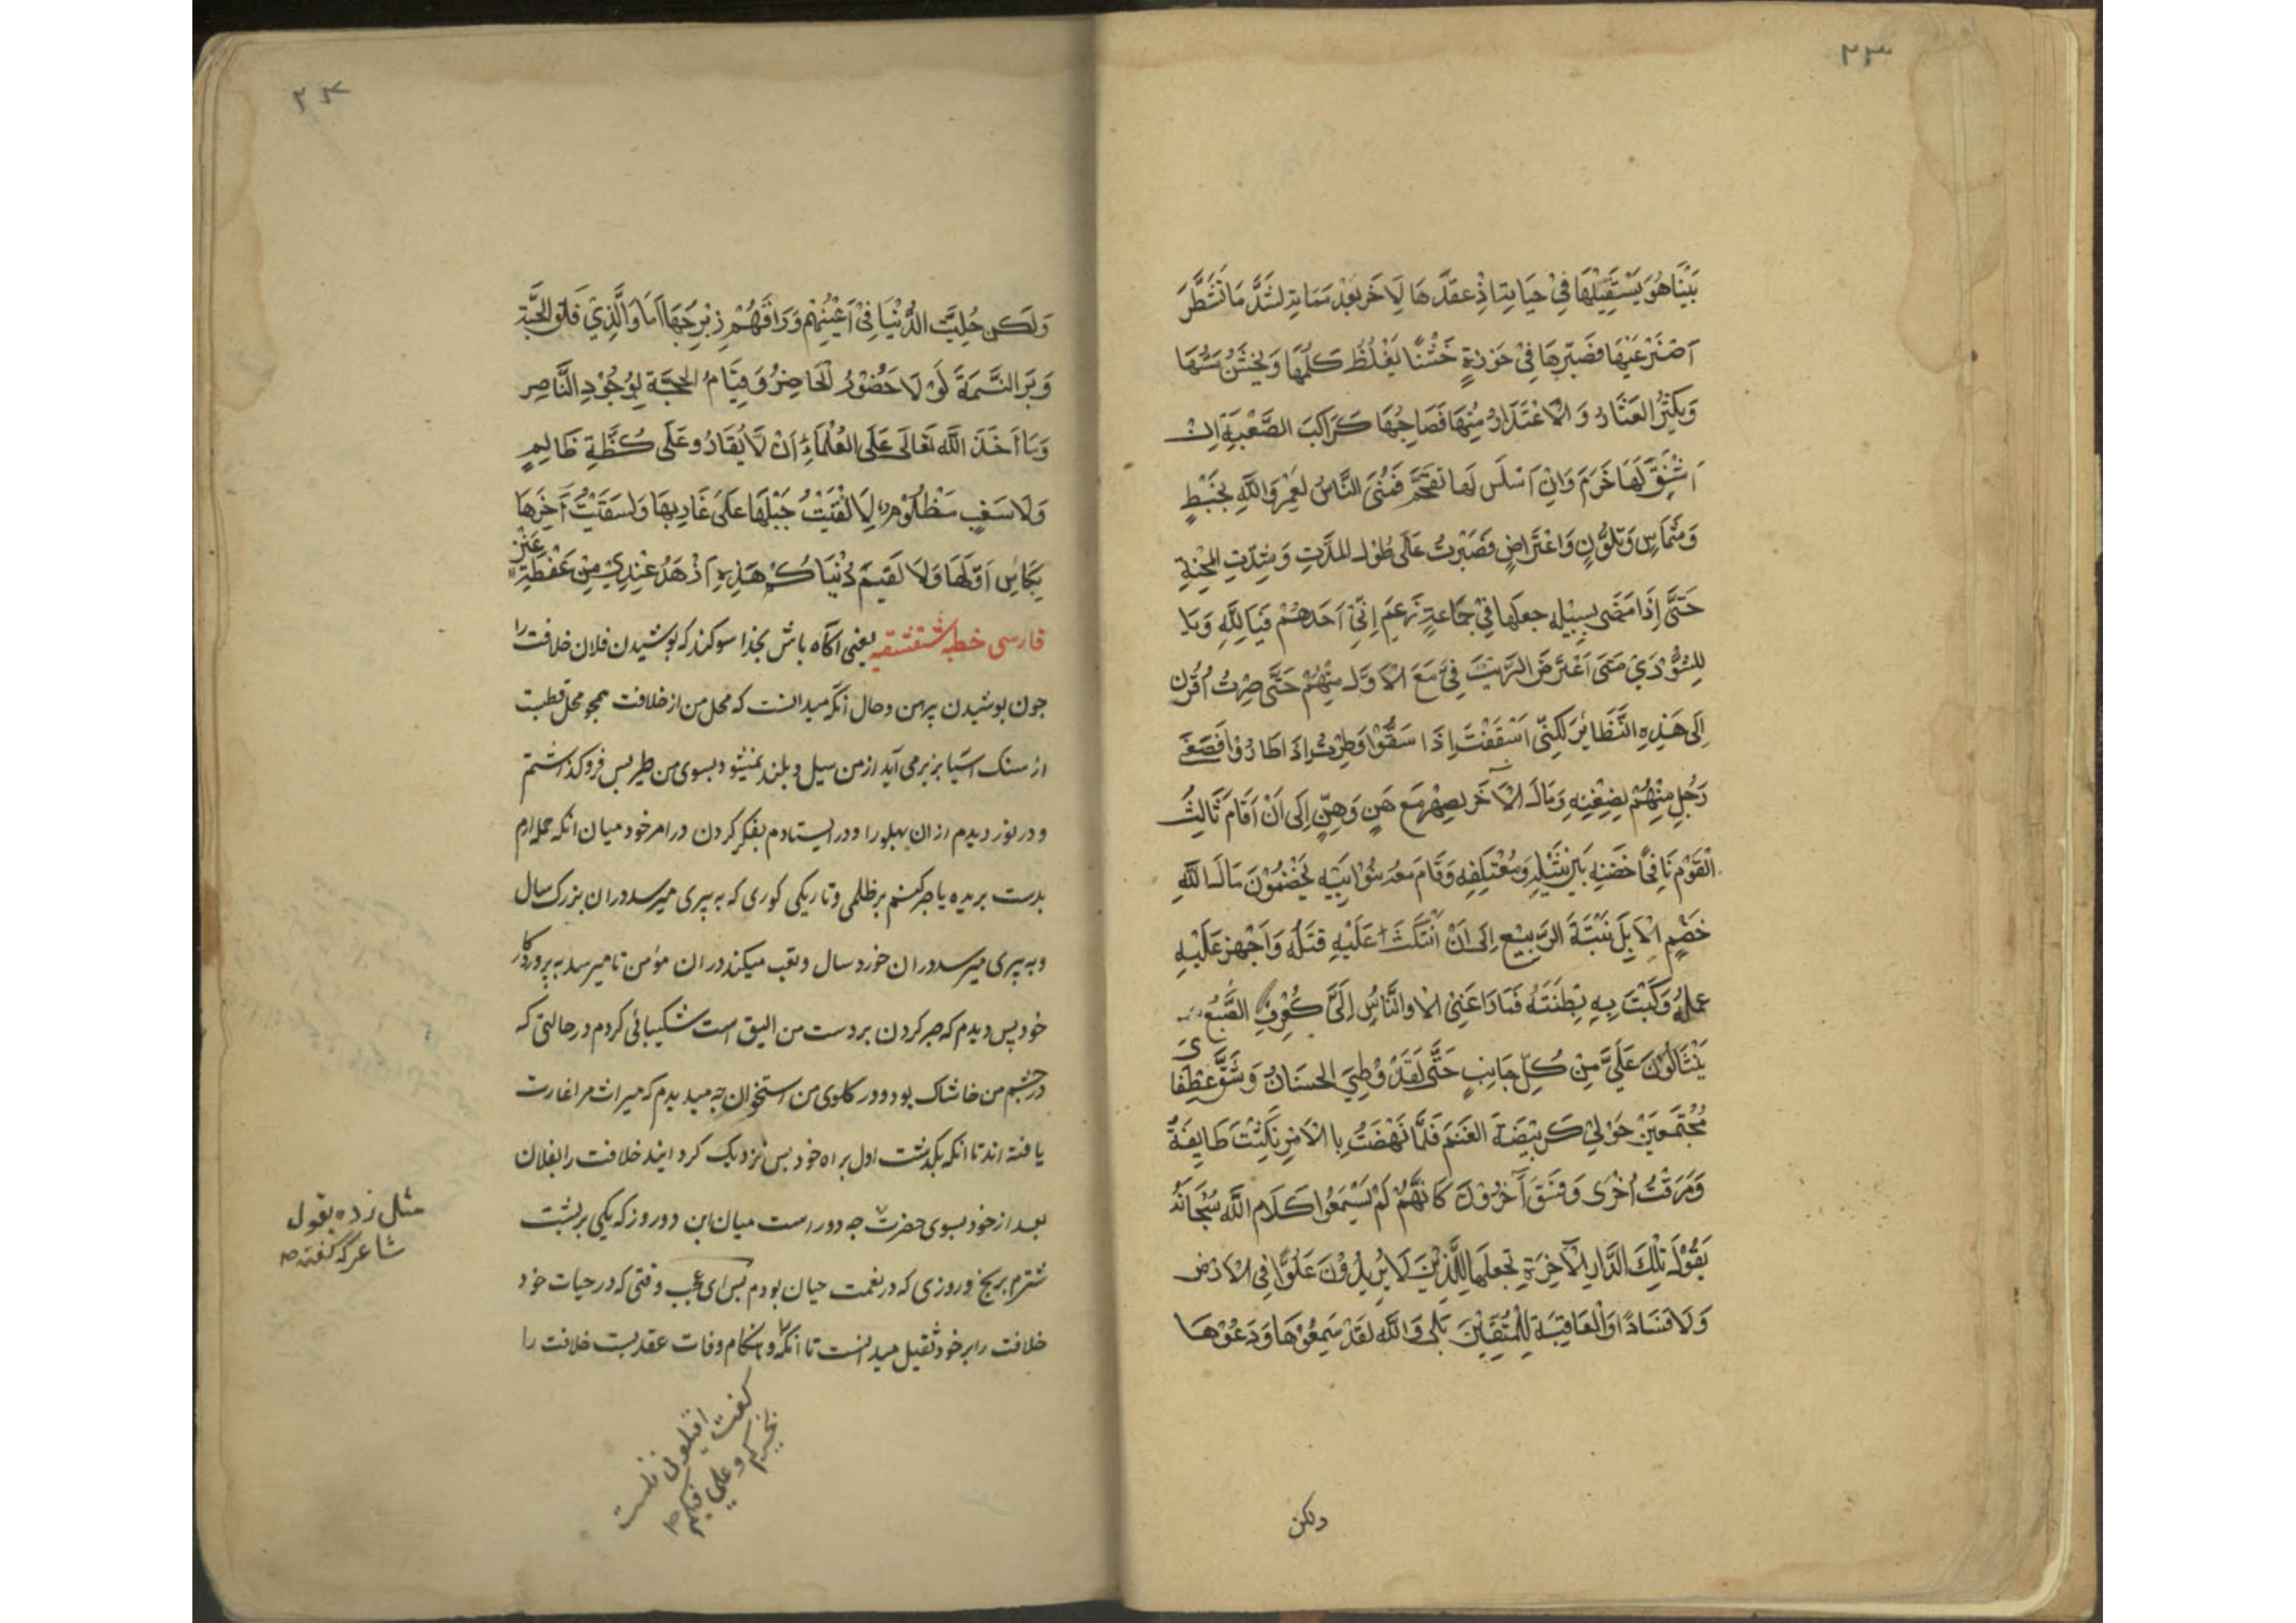 ٢٣
بَيْنَا هُوَ يَسْتَقِيلُهَا فِي حَيَاتِهِ اِذْ عَقَدَهَا لِآخَرَ بَعْدَ مَمَاتِهِ لَشَدَّ مَا تَشَطَّرَ
ضَرْعَيْهَا فَصَيَّرَهَا فِي حَوْزَةٍ خَشْنَا يَغْلُظُ كَلْمُهَا وَيَخْشُنُ مَسُّهَا
وَيَكْثُرُ العَثَارُ وَ الْاعْتَذَارُ مِنْهَا فَصَاحِبُهَا كَرَاكِبِ الصَّعْبَةِ اِنْ
اَشْنَقَ لَهَا خَرَمَ وَاِنْ اَسْلَسَ لَهَا تَقَحَّمَ فَمُنِيَ النَّاسُ لَعَمْرُ وَاللّهِ بِخَبْطٍ
وَشَمَاسٍ وَتَلَوُّنٍ وَاعْتَرَاضٍ فَصَبَرْتُ عَلَى طُوْلِ المدَّتِ وَشِدَّتِ المِحْنَةِ
حَتَّى إِذَا مَضَى بِسَبِيْلِهِ جعلَهَا فِيْ جَمَاعَةٍ زَعَمَ اِنِّيْ اَحَدُهُمْ فَيَا لِلّهِ وَيَا
لِلشُّوْرَيْ مَتَى اعْتَرَضَ الرَّيْبُ فِيَّ مَعَ الْاَوَّلِ مِنْهُمْ حَتَّى صِرْتُ اُقْرَنُ
اِلَى هَذِهِ النَّظَائِرِ لَكِنِّي اَسْفَفْتُ اِذَا سَفُّوْا وَطِرْتُ اِذَا طَارُوْا فَصَغَى
رَجُلٌ مِنْهُمْ بِضِغْنِهِ وَمَالَ الْآخَرُ بِصِهْرِهِ مَعَ هَنٍ وَهَنٍ اِلَى اَنْ اَقَامَ ثَالِثُ
الْقَوْمِ نَافِجًا حَضْنِهِ بَيْنَ نَثِيْلِهِ وَمُعْتَلَفِهِ وَقَامَ مَعَهُ بَنُوْا اَبِيْهِ يَخْضَمُوْنَ مَالَ اللّهِ
خَضْمَ الْاِبِلَ نَبْتَةَ الرَّبِيْعِ اِلَى اَنْ اَنْتَكَثَ عَلَيْهِ فَتَلُهُ وَاَجْهَزَ عَلَيْهِ
عَمَلُهُ وَكَبَّتْ بِهِ بِطْنَتُهُ فَمَا رَاعَنِيْ الْا وَالنَّاسُ اِلَيَّ كَعُرْفِ الضَّبُعِ
يَنْثَالُوْنَ عَلَيَّ مِنْ كُلِّ جَانِبٍ حَتَّى لَقَدْ وُطِيَ الحَسَنَانُ وَشُقَّ عِطْفَايَ
مُجْتَمَعِيْنَ حَوْلِيْ كَرَبِيْضَةِ الغَنَمِ فَلَمَّا نَهَضْتُ بِالْاَمْرِ نَكَثَتْ طَايِفَةٌ
وَمَرَقَتْ اُخْرَى وَفَسَقَ آخَرُوْنَ كَاَنَّهُمْ لَمْ يَسْمَعُوْا كَلَامَ اللّهِ سُبْحَانَهُ
يَقُوْلَ تِلْكَ الدَّارِ الْآخِرَةِ نَجْعَلُهَا لِلَّذِيْنَ لَا يُرِيْدُوْنَ عُلُوًّا فِي الْاَرْضِ
وَلَا فَسَادًا وَالْعَاقِبَةُ لِلْمُتَّقِيْنَ بَلَى وَاللّهِ لَقَدْ سَمِعُوْهَا وَدَعَوْهَا
ولكن
٢٤
وَلَكِنْ حُلِيَتِ الدُّنْيَا فِيْ اَعْيُنِهِمْ وَرَاقَهُمْ زِبْرِجُهَا اَمَا وَالَّذِيْ فَلَقَ الحَبَّةِ
وَبَرَأ النَّسَمَةَ لَوْ لَا حُضُوْرُ الْحَاضِرُ وَقِيَامُ الحجَّةِ لِوُجُوْدِ النَّاصِرِ
وَمَا اَخَذَ اللّهُ تَعَالَى عَلَى العُلَمَاءِ اَنْ لَا يُقَارُّوْ عَلَى كُظَّةِ ظَالِمٍ
وَلَا سَغَبِ مَظْلُوْمٍ لَاَلْقَيْتُ حَبْلَهَا عَلَى غَارِبِهَا وَلَسَقَيْتُ آخِرَهَا
بِكَاْسِ اَوَّلِهَا وَلَاَلْفَيْتُمْ دُنْيَاكُمْ هَذِهِ اَزْهَدَ عِنْدِيْ مِنْ عَفْطَةِ عَنْزٍ
فارسی خطبه شقشقیه یعنی آگاه باش بخدا سوکند که پوشیدن فلان خلافت را
جون پوشیدن پیرهن و حال آنکه میدانست که محل من از خلافت همچو محل قطبت
از سنک آسیا بزیر می آید از من سیل و بلند نمیشود بسوی من طیر پس فروکذاشتم
و در نور دیدم از آن پهلو را و در ایستادم بفکر کردن در امر خود میان انکه حمله ارم
بدست بریده یا صبر کنم بر ظلمی و تاریکی کوری که به پیری میرسد در ان بزرک سال
و به پیری میرسد در ان خورد سال و تعب میکند در ان مؤمن تا میرسد به پروردکار
خود پس دیدم که صبر کردن بر دست من الیق است شکیبائی کردم در حالتی که
در چشم من خاشاک بود و در کلوی من استخوان جه میدیدم که میراث مرا غارت
یافته اند تا انکه بکذشت اول براه خود پس نزدیک کردانید خلافت را بفلان
بعد از خود بسوی حضرت جه دور است میان این دو روز که یکی بر پشت
شترم برنج و روزی که در نعمت حیان بودم پس ای عجب وقتی که در حیات خود
خلافت را بر خود ثقیل میدانست تا انکه و هنکام وفات عقد بست خلافت را
مثل زده بقول
شاعر که گفته
گفت اقیلونی فلست
بخیرکم و علی فیکم